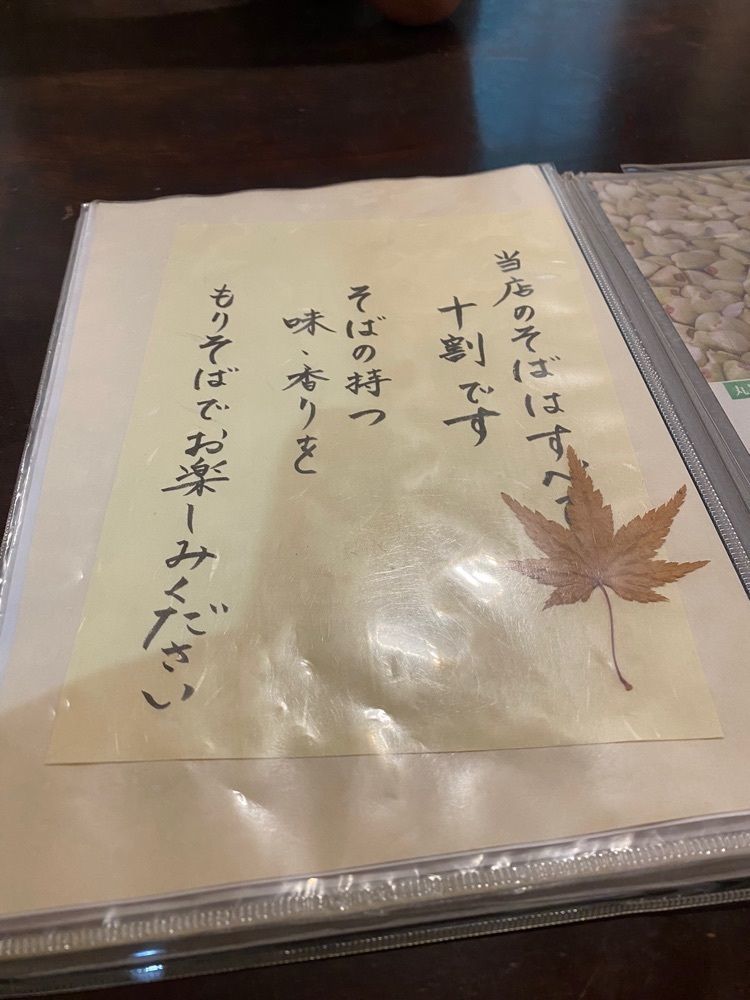 当店のそばはすべて
十割です
そばの持つ
味、香りを
もりそばでお楽しみください
丸